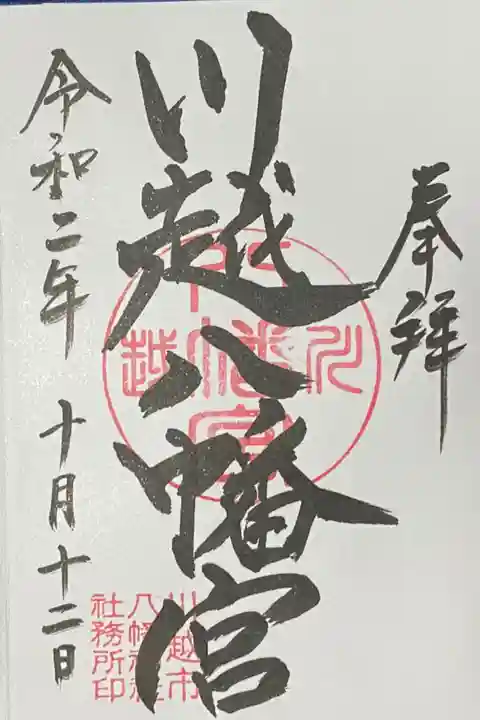 奉拝
川越八幡宮
川越八幡宮
川越市
八幡神社
社務所印
令和二年 十月十二日